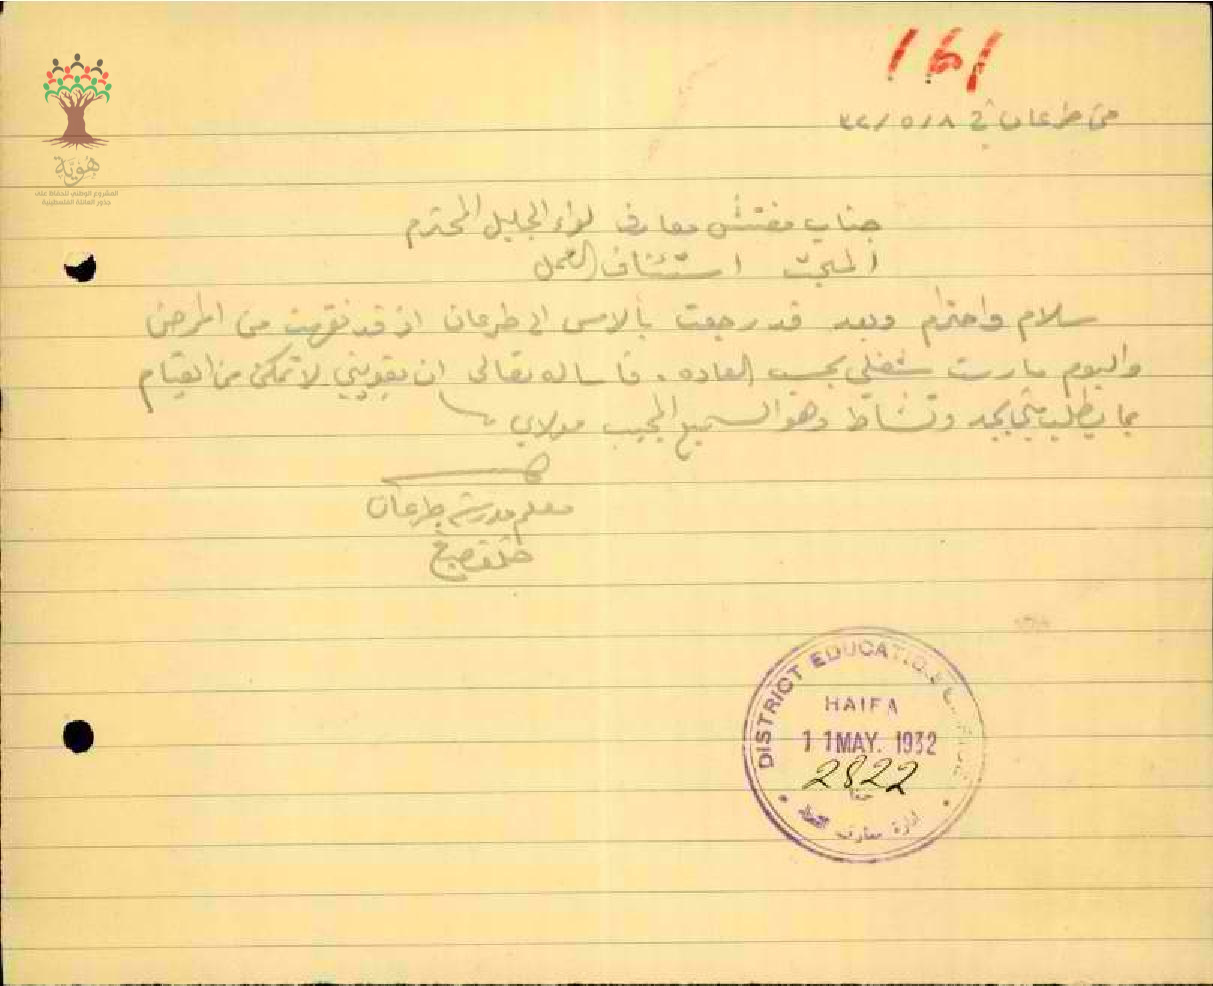 161
من طرعان في ٨/٥/٣٢
هُوِيَّة
المشروع الوطني للحفاظ على
جذور العائلة الفلسطينية
جناب مفتش معارف لواء الجليل المحترم
المبحث استئناف العمل
سلام واحترام وبعد قد رجعت بالامس الى طرعان اذ قد نقهت من المرض
واليوم مارست شغلي بحسب العاده. فأساله تعالى ان يقويني لاتمكن من القيام
بما يطلب مني بجد ونشاط وهو السميع المجيب مولاي
معلم مدرسة طرعان
DISTRICT EDUCATION
HAIFA
11 MAY. 1932
2822
حيفا
ادارة معارف